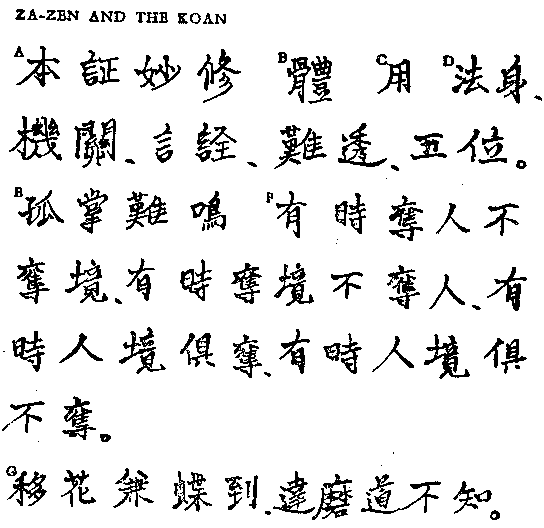 ZA-ZEN AND THE KOAN
A本証妙修 B體 C用 D法身、
機關、言詮、難透、五位。
E孤掌難鳴 F有時奪人不
奪境、有時奪境不奪人、有
時人境俱奪、有時人境俱
不奪。
G移花兼蝶到、達磨道不知。